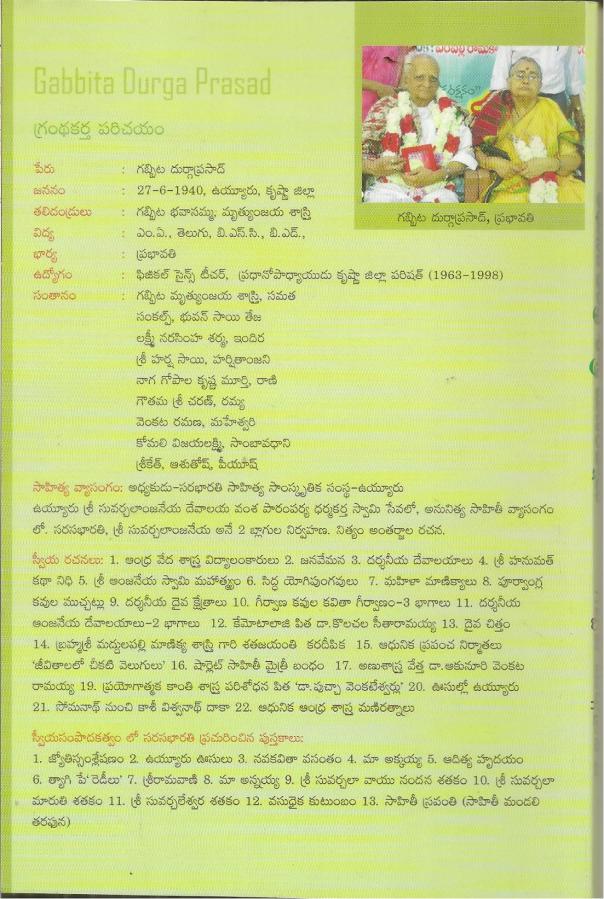 Gabbita Durga Prasad
గ్రంథకర్త పరిచయం
గబ్బిట దుర్గాప్రసాద్, ప్రభావతి
పేరు : గబ్బిట దుర్గాప్రసాద్
జననం : 27-6-1940, ఉయ్యూరు, కృష్ణా జిల్లా
తలిదండ్రులు : గబ్బిట భవానమ్మ, మృత్యుంజయ శాస్త్రి
విద్య : ఎం.ఏ., తెలుగు, బి.ఎస్.సి., బి.ఎడ్.,
భార్య : ప్రభావతి
ఉద్యోగం : ఫిజికల్ సైన్స్ టీచర్, ప్రధానోపాధ్యాయుడు కృష్ణా జిల్లా పరిషత్ (1963-1998)
సంతానం : గబ్బిట మృత్యుంజయ శాస్త్రి, సమత
సంకల్ప్, భువన్ సాయి తేజ
లక్ష్మీ నరసింహ శర్మ, ఇందిర
శ్రీ హర్ష సాయి, హర్షితాంజని
నాగ గోపాల కృష్ణ మూర్తి, రాణి
గౌతమ శ్రీ చరణ్, రమ్య
వెంకట రమణ, మహేశ్వరి
కోమలి విజయలక్ష్మి, సాంబావధాని
శ్రీకేత్, ఆశుతోష్, పీయూష్
సాహిత్య వ్యాసంగం: అధ్యకుడు-సరభారతి సాహిత్య సాంస్కృతిక సంస్థ-ఉయ్యూరు
ఉయ్యూరు శ్రీ సువర్చలాంజనేయ దేవాలయ వంశ పారంపర్య ధర్మకర్త స్వామి సేవలో, అనునిత్య సాహితీ వ్యాసంగం
లో. సరసభారతి, శ్రీ సువర్చలాంజనేయ అనే 2 బ్లాగుల నిర్వహణ. నిత్యం అంతర్జాల రచన.
స్వీయ రచనలు: 1. ఆంధ్ర వేద శాస్త్ర విద్యాలంకారులు 2. జనవేమన 3. దర్శనీయ దేవాలయాలు 4. శ్రీ హనుమత్
కథా నిధి 5. శ్రీ ఆంజనేయ స్వామి మహాత్మ్యం 6. సిద్ధ యోగిపుంగవులు 7. మహిళా మాణిక్యాలు 8. పూర్వాంగ్ల
కవుల ముచ్చట్లు 9. దర్శనీయ దైవ క్షేత్రాలు 10. గీర్వాణ కవుల కవితా గీర్వాణం-3 భాగాలు 11. దర్శనీయ
ఆంజనేయ దేవాలయాలు-2 భాగాలు 12. కేమోటాలాజి పిత డా.కొలచల సీతారామయ్య 13. దైవ చిత్తం
14. బ్రహ్మశ్రీ మద్దులపల్లి మాణిక్య శాస్త్రి గారి శతజయంతి కరదీపిక 15. ఆధునిక ప్రపంచ నిర్మాతలు
'జీవితాలలో చీకటి వెలుగులు' 16. షార్లెట్ సాహితీ మైత్రీ బంధం 17. అణుశాస్త్ర వేత్త డా.ఆకునూరి వెంకట
రామయ్య 19. ప్రయోగాత్మక కాంతి శాస్త్ర పరిశోధన పిత 'డా.పుచ్చా వెంకటేశ్వర్లు' 20. ఊసుల్లో ఉయ్యూరు
21. సోమనాథ్ నుంచి కాశీ విశ్వనాథ్ దాకా 22. అధునిక ఆంధ్ర శాస్త్ర మణిరత్నాలు
స్వీయసంపాదకత్వం లో సరసభారతి ప్రచురించిన పుస్తకాలు:
1. జ్యోతిస్సంశ్లేషణం 2. ఉయ్యూరు ఊసులు 3. నవకవితా వసంతం 4. మా అక్కయ్య 5. ఆదిత్య హృదయం
6. త్యాగి పే' రెడీలు' 7. శ్రీరామవాణి 8. మా అన్నయ్య 9. శ్రీ సువర్చలా వాయు నందన శతకం 10. శ్రీ సువర్చలా
మారుతి శతకం 11. శ్రీ సువర్చలేశ్వర శతకం 12. వసుధైక కుటుంబం 13. సాహితీ స్రవంతి (సాహితీ మండలి
తరఫున)